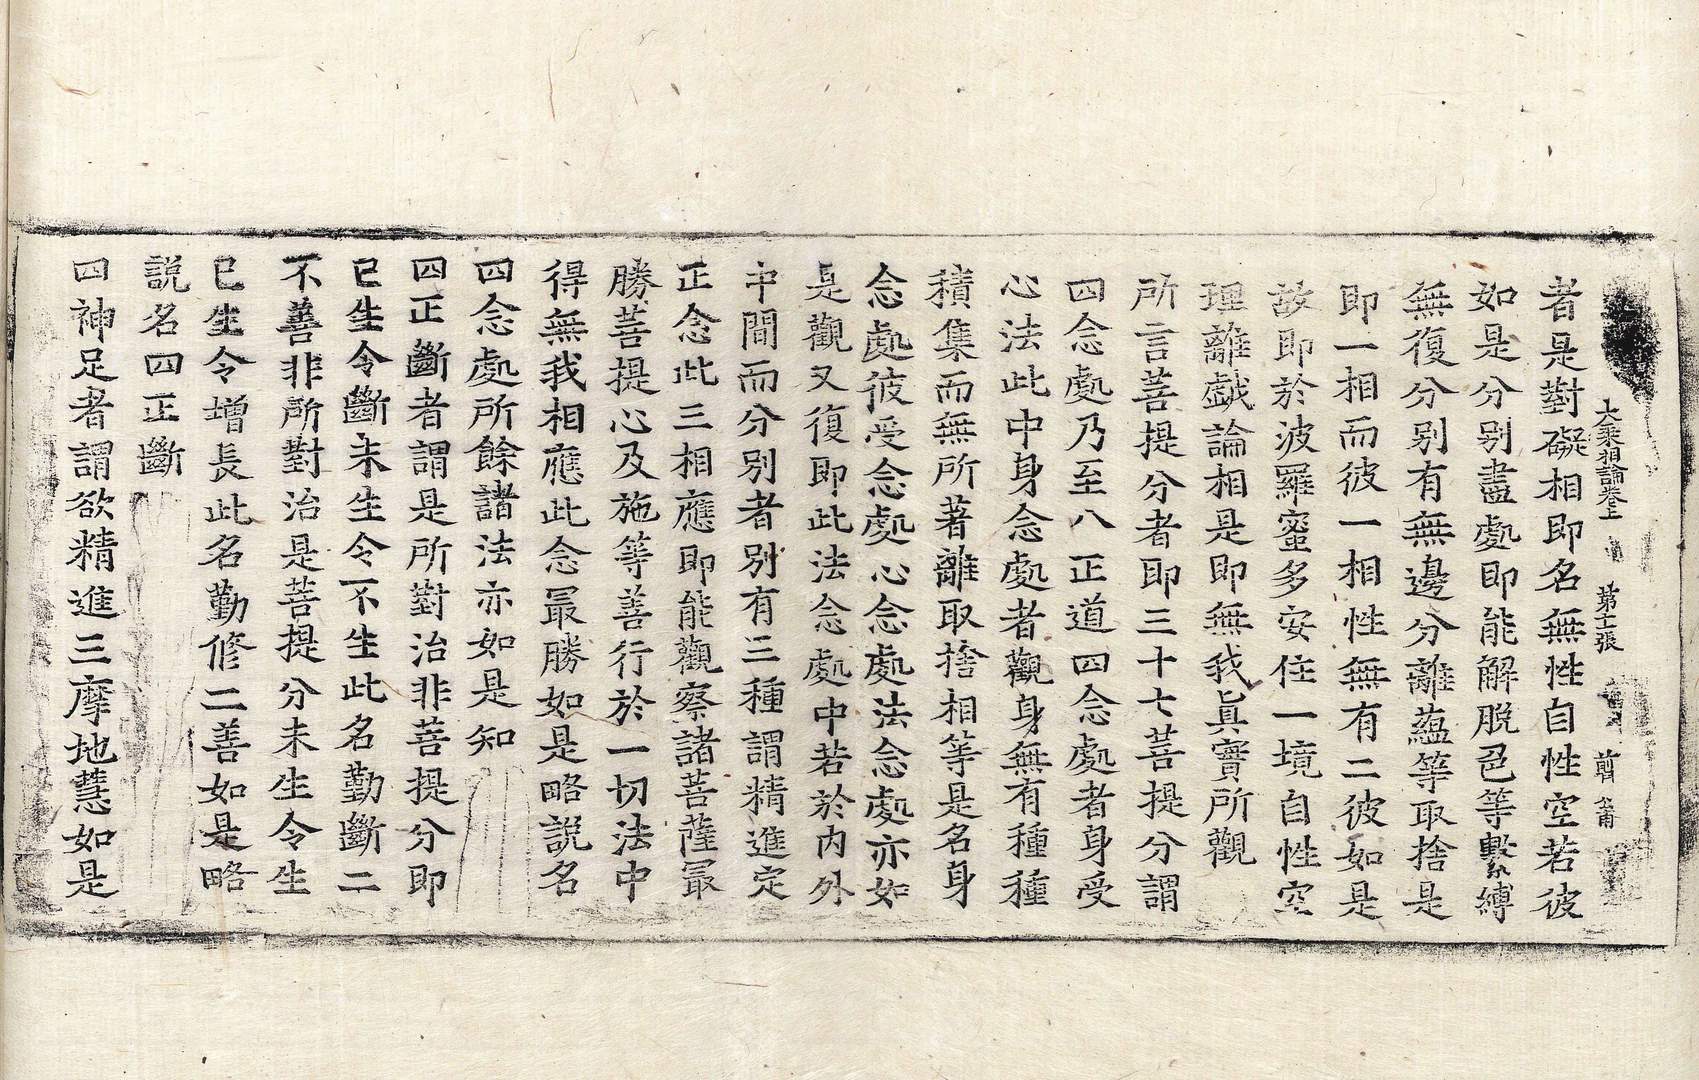 大乘相論卷上 第十二張 翦
者是對礙相即名無性自性空若彼
如是分別盡處即能解脫色等繫縛
無復分別有無邊分離蘊等取捨是
即一相而彼一相性無有二彼如是
故即於波羅蜜多安住一境自性空
理離戲論相是即無我眞實所觀
所言菩提分者即三十七菩提分謂
四念處乃至八正道四念處者身受
心法此中身念處者觀身無有種種
積集而無所著離取捨相等是名身
念處彼受念處心念處法念處亦如
是觀又復即此法念處中若於内外
中間而分別者別有三種謂精進定
正念此三相應即能觀察諸菩薩㝡
勝菩提心及施等善行於一切法中
得無我相應此念㝡勝如是略說名
四念處所餘諸法亦如是知
四正斷者謂是所對治非菩提分即
已生令斷未生令不生此名勤斷二
不善非所對治是菩提分未生令生
已生令增長此名勤修二善如是略
説名四正斷
四神足者謂欲精進三摩地慧如是